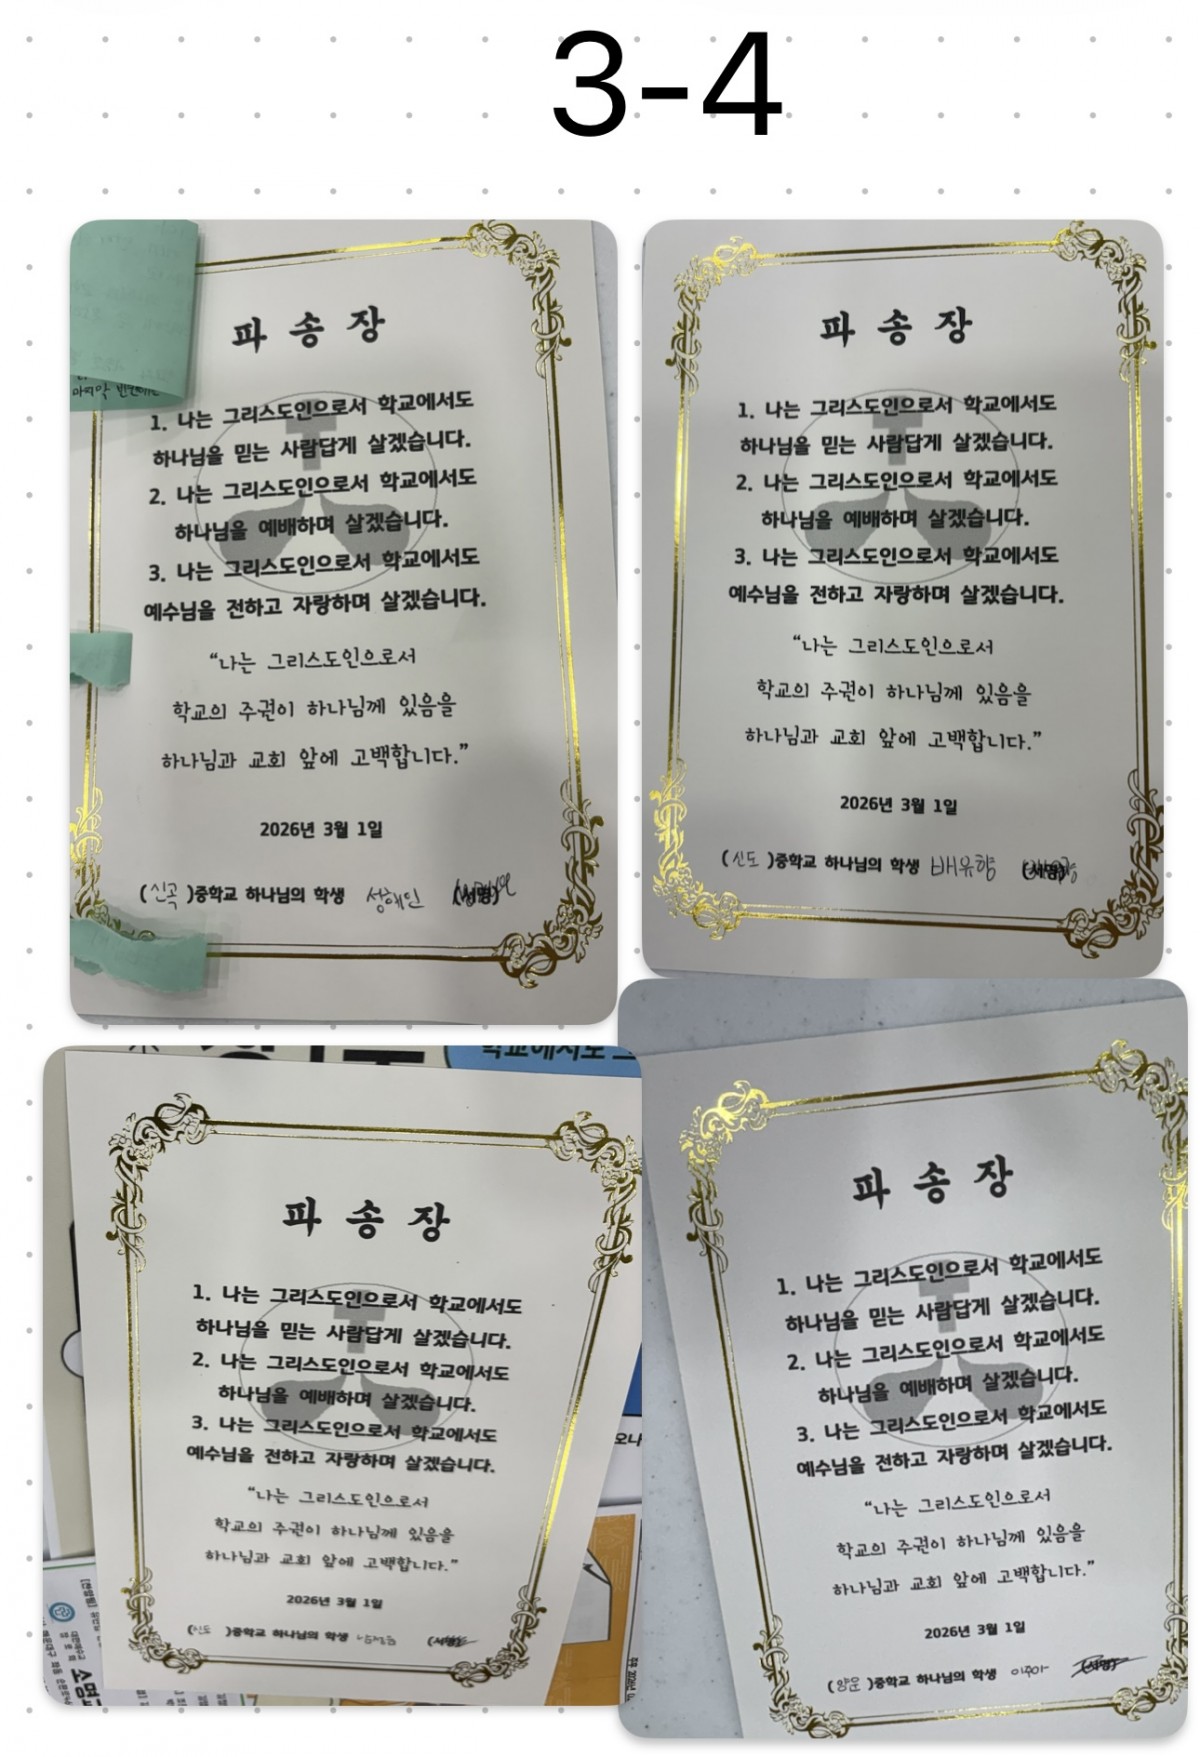 3-4
마지막
파 송 장
1. 나는 그리스도인으로서 학교에서도
하나님을 믿는 사람답게 살겠습니다.
2. 나는 그리스도인으로서 학교에서도
하나님을 예배하며 살겠습니다.
3. 나는 그리스도인으로서 학교에서도
예수님을 전하고 자랑하며 살겠습니다.
“나는 그리스도인으로서
학교의 주권이 하나님께 있음을
하나님과 교회 앞에 고백합니다.”
2026년 3월 1일
(신곡)중학교 하나님의 학생 성해인 (서명)
파 송 장
1. 나는 그리스도인으로서 학교에서도
하나님을 믿는 사람답게 살겠습니다.
2. 나는 그리스도인으로서 학교에서도
하나님을 예배하며 살겠습니다.
3. 나는 그리스도인으로서 학교에서도
예수님을 전하고 자랑하며 살겠습니다.
“나는 그리스도인으로서
학교의 주권이 하나님께 있음을
하나님과 교회 앞에 고백합니다.”
2026년 3월 1일
(신도)중학교 하나님의 학생 배유향 (서명)
학교에서도 그
파 송 장
1. 나는 그리스도인으로서 학교에서도
하나님을 믿는 사람답게 살겠습니다.
2. 나는 그리스도인으로서 학교에서도
하나님을 예배하며 살겠습니다.
3. 나는 그리스도인으로서 학교에서도
예수님을 전하고 자랑하며 살겠습니다.
“나는 그리스도인으로서
학교의 주권이 하나님께 있음을
하나님과 교회 앞에 고백합니다.”
2026년 3월 1일
(신도)중학교 하나님의 학생 (서명)
파 송 장
1. 나는 그리스도인으로서 학교에서도
하나님을 믿는 사람답게 살겠습니다.
2. 나는 그리스도인으로서 학교에서도
하나님을 예배하며 살겠습니다.
3. 나는 그리스도인으로서 학교에서도
예수님을 전하고 자랑하며 살겠습니다.
“나는 그리스도인으로서
학교의 주권이 하나님께 있음을
하나님과 교회 앞에 고백합니다.”
2026년 3월 1일
(양운)중학교 하나님의 학생 이주아 (서명)